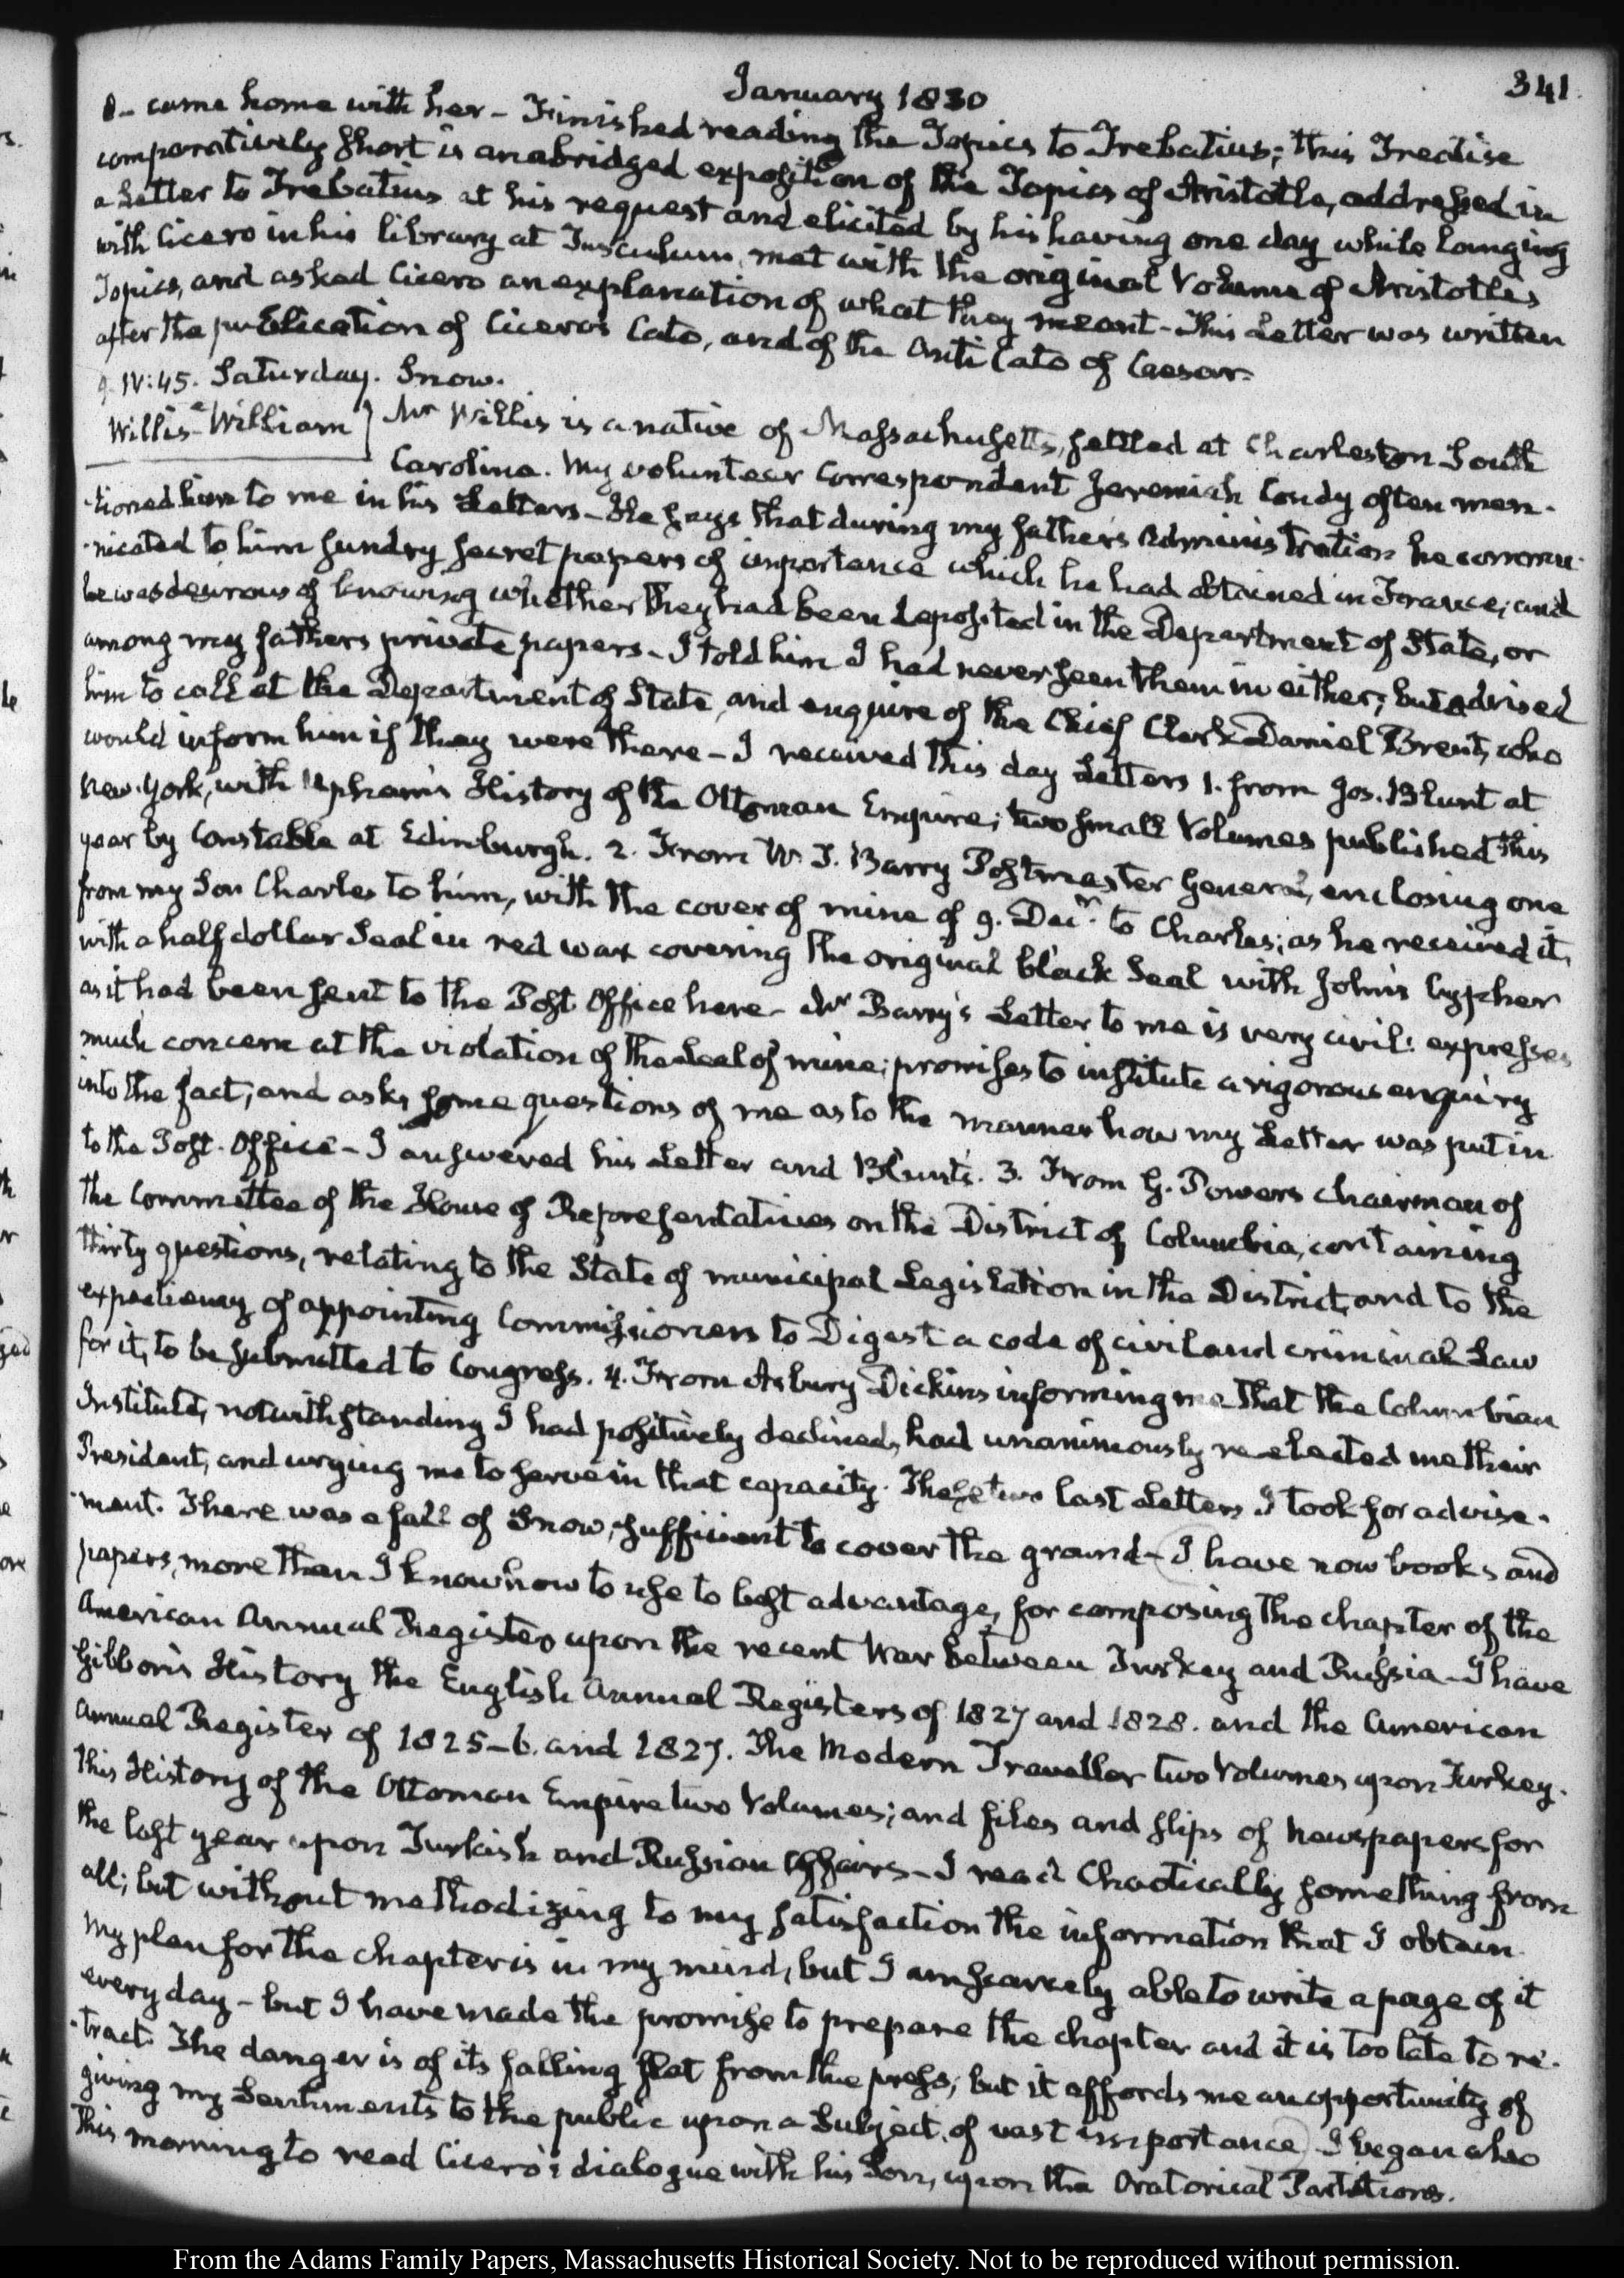 January 1830
341.
8- came home with her- Finished reading the Topics to Trebatius; this Treatise
comparatively short is an abridged exposition of the Topics of Aristotle, addressed in
a Letter to Trebatius at his request and elicited by his having one day while lounging
with Cicero in his library at Tusculum, met with the original Volume of Aristotle's
Topics, and asked Cicero an explanation of what they meant- This Letter was written
after the publication of Cicero's Cato, and of the Anti Cato of Caesar.
9. IV:45. Saturday. Snow.
Willis- William } Mr Willis is a native of Massachusetts, settled at Charleston South
Carolina. My volunteer correspondent Jeremiah Condy often men-
-tioned him to me in his Letters- He says that during my father's Administration he commu-
-nicated to him sundry secret papers of importance which he had obtained in France; and
he was desirous of knowing whether they had been deposited in the Department of State, or
among my fathers private papers- I told him I had never seen them in either; but advised
him to call at the Department of State, and enquire of the Chief Clerk Daniel Brent, who
would inform him if they were there- I received this day Letters 1. from Jos. Blunt at
New-York, with Upham's History of the Ottoman Empire; two small Volumes published this
year by Constable at Edinburgh. 2. From W. T. Barry Postmaster General, enclosing one
from my Son Charles to him, with the cover of mine of 9. Decr. to Charles; as he received it,
with a half dollar Seal in red wax covering the original black Seal with John's Cypher
as it had been sent to the Post Office here- Mr Barry's Letter to me is very civil: expresses
much concern at the violation of the Seal of mine; promises to institute a rigorous enquiry
into the fact; and asks some questions of me as to the manner how my Letter was put in
to the Post-Office- I answered his Letter and Blunt's. 3. From G. Powers chairman of
the Committee of the House of Representatives on the District of Columbia, containing
thirty questions, relating to the State of municipal Legislation in the District, and to the
expediency of appointing Commissioners to Digest a code of civil and criminal Law
for it, to be submitted to Congress. 4. From Asbury Dickins informing me that the Columbian
Institute, notwithstanding I had positively declined, had unanimously re-elected me their
President, and urging me to serve in that capacity. These two last Letters I took for advise-
-ment. There was a fall of Snow, sufficient to cover the ground- (I have now books and
papers, more than I know how to use to best advantage, for composing the chapter of the
American Annual Register, upon the recent War between Turkey and Russia- I have
Gibbon's History the English Annual Registers of 1827 and 1828. and the American
Annual Register of 1825-6. and 1827. The Modern Traveller two Volumes upon Turkey.
This History of the Ottoman Empire two Volumes; and files and slips of Newspapers for
the last year upon Turkish and Russian Affairs- I read Chaotically something from
all; but without methodizing to my satisfaction the information that I obtain.
My plan for the chapter is in my mind, but I am scarcely able to write a page of it
every day- but I have made the promise to prepare the chapter and it is too late to re-
-tract. The danger is of its falling flat from the press; but it affords me an opportunity of
giving my Sentiments to the public upon a Subject, of vast importance) I began also
this morning to read Cicero's dialogue with his Son, upon the Oratorical Partitions.
From the Adams Family Papers, Massachusetts Historical Society. Not to be reproduced without permission.